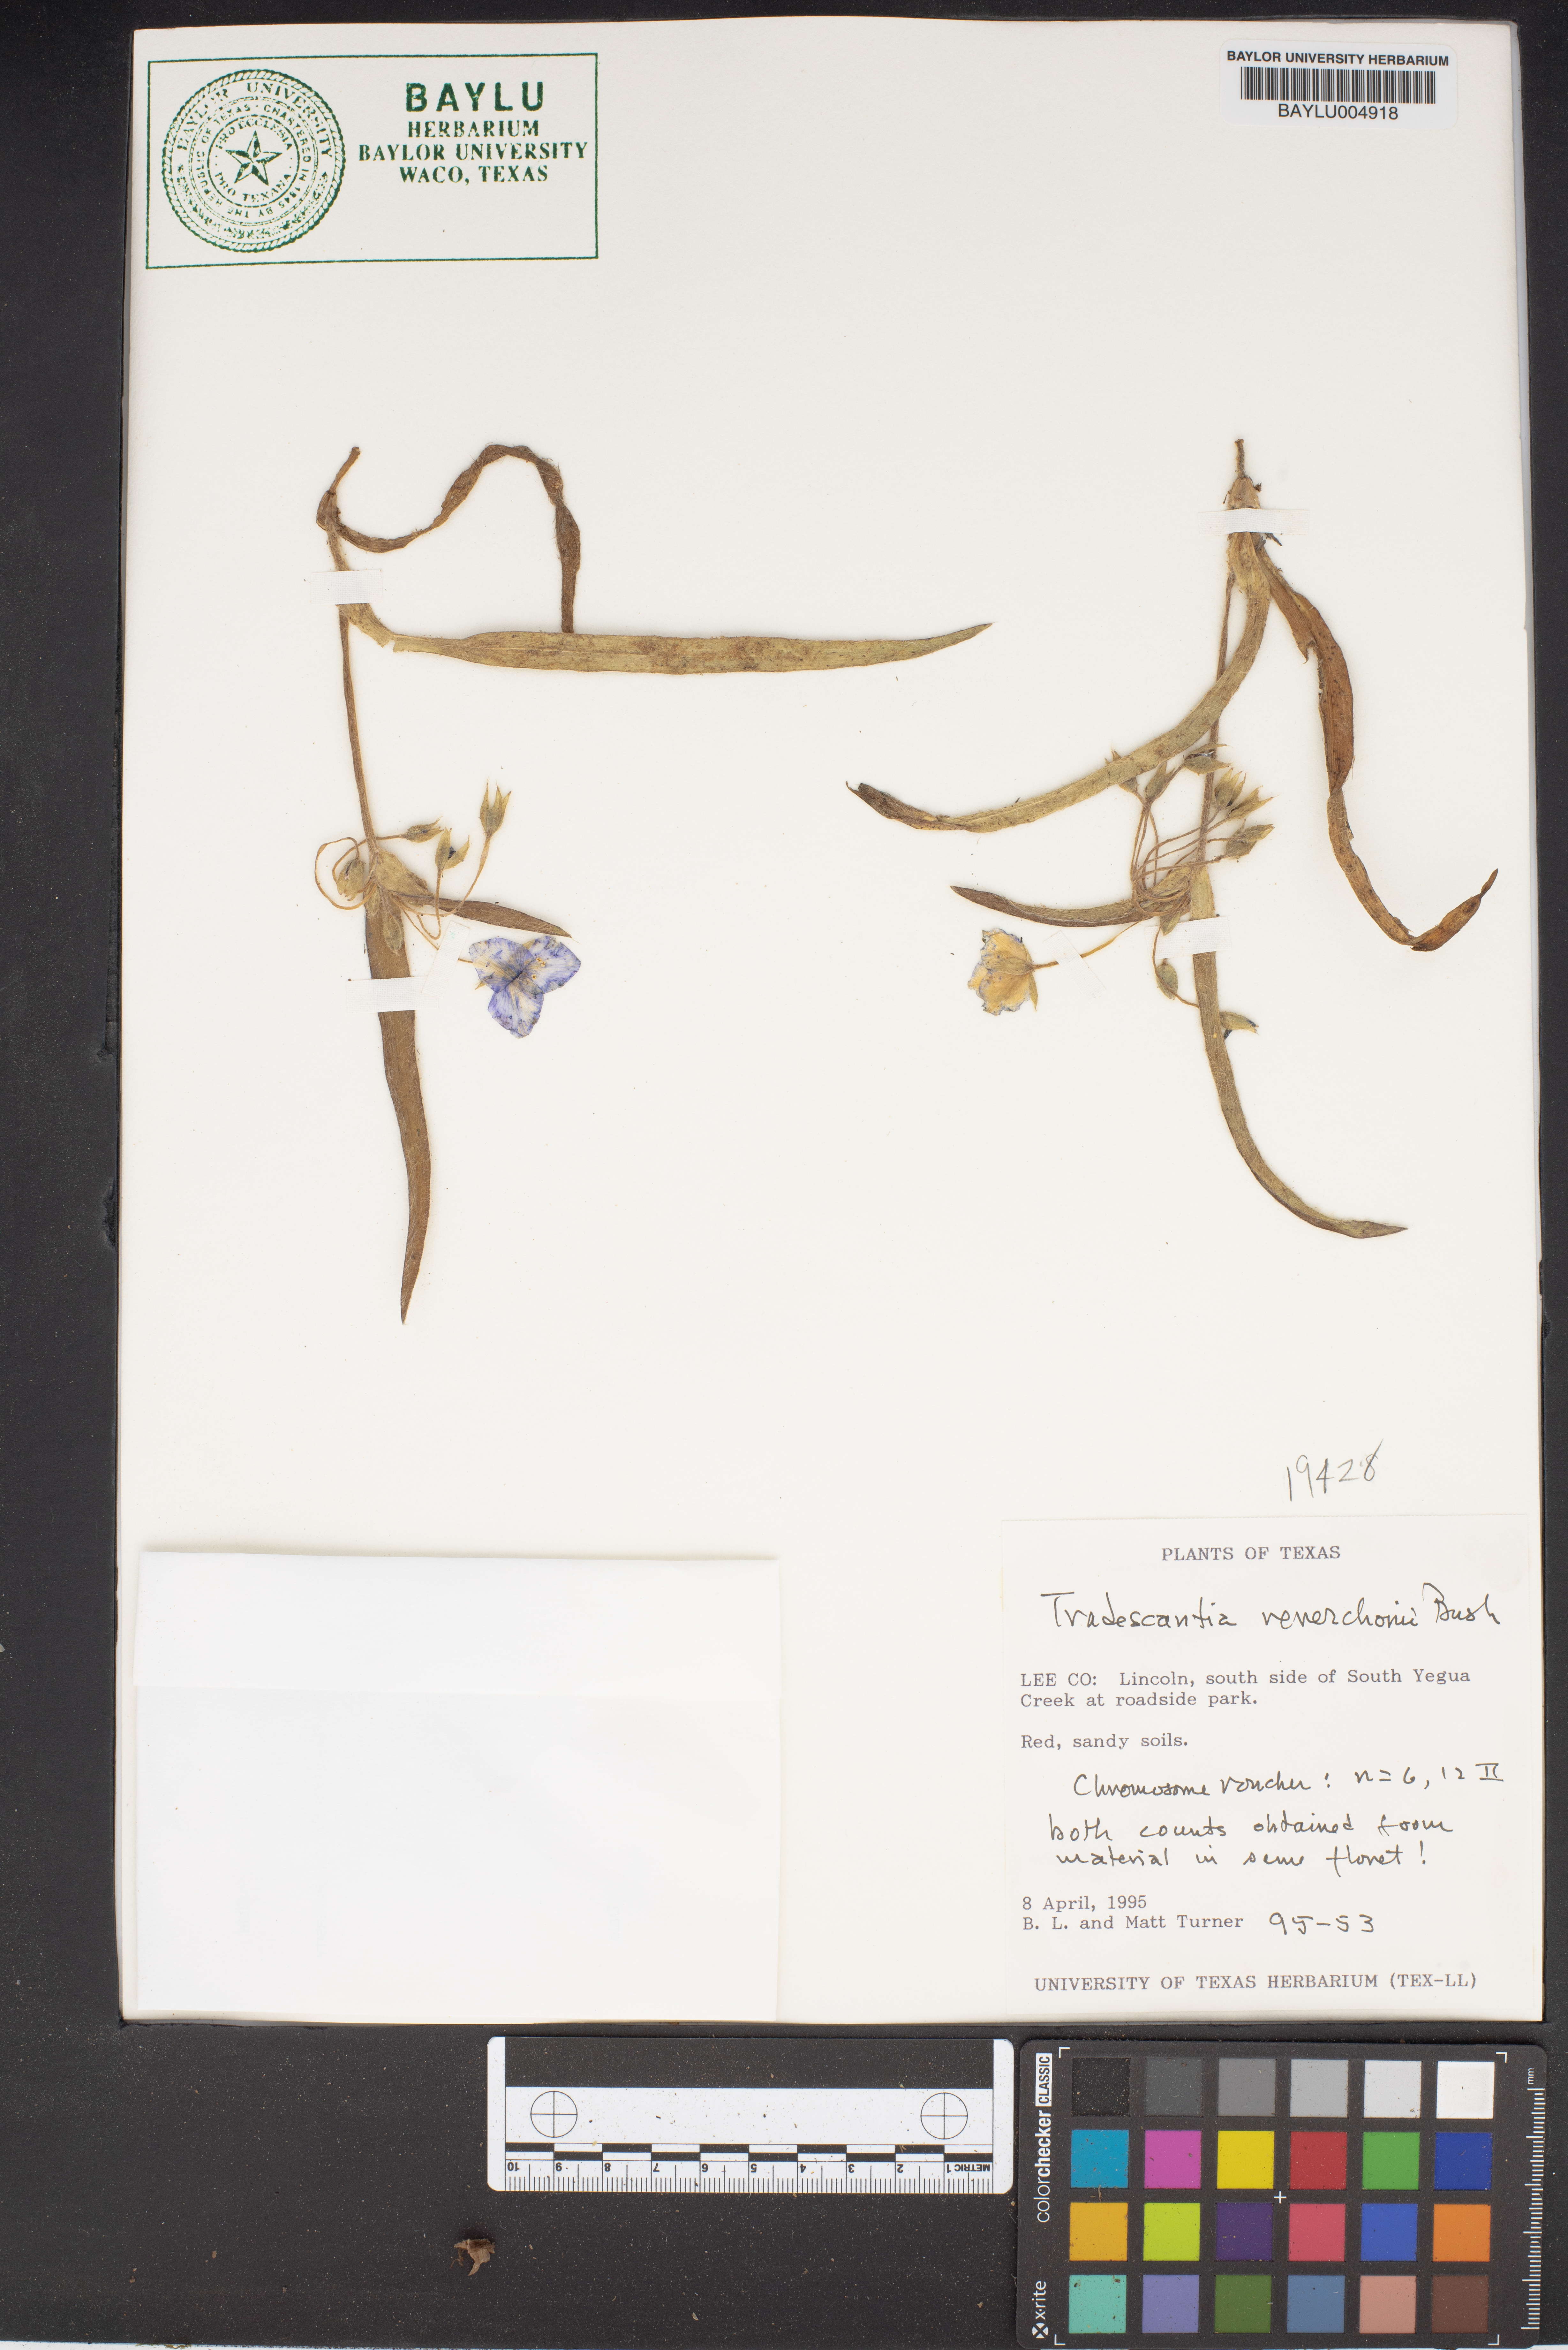 BAYLOR UNIVERSITY HERBARIUM
BAYLU004918
BAYLU
HERBARIUM
BAYLOR UNIVERSITY
WACO, TEXAS
BAYLOR UNIVERSITY
CHARTERED IN 1845 BY THE REPUBLIC OF TEXAS
PRO ECCLESIA
PRO TEXANA
19428
PLANTS OF TEXAS
Tradescantia reverchonii Bush
LEE CO: Lincoln, south side of South Yegua
Creek at roadside park.
Red, sandy soils.
Chromosome voucher: n=6, 12 II
both counts obtained from
material in same floret!
8 April, 1995
B. L. and Matt Turner 95-53
UNIVERSITY OF TEXAS HERBARIUM (TEX-LL)
METRIC 1 2 3 4 5 6 7 8 9 10
colorchecker CLASSIC
x-rite
mm